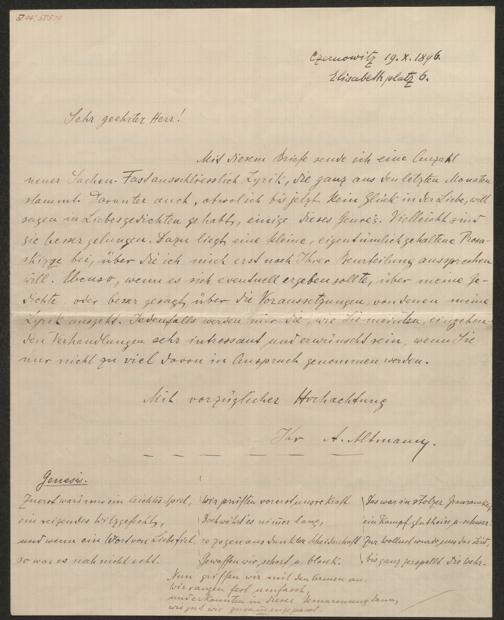 Czernowitz 19.X.1896.
Elisabethplatz 6.
Sehr geehrter Herr!
Mit diesem Briefe sende ich eine Anzahl
neuer Sachen. Fast ausschliesslich Lyrik, die ganz aus den letzten Monaten
stammt. Darunter auch, obwohl ich bis jetzt kein Glück in der Liebe, will
sagen in Liebesgedichten gehabt, einige dieses Genres. Vielleicht sind
sie besser gelungen. Dazu liegt eine kleine, eigentümlich gehaltene Prosa-
skizze bei, über die ich mich erst nach Ihrer Beurteilung aussprechen
will. Ebenso, wenn es sich eventuell ergeben sollte, über meine Ge-
dichte oder besser gesagt, über die Voraussetzungen, von denen meine
Lyrik ausgeht. Jedenfalls werden mir die, wie Sie meinten, eingehen-
den Verhandlungen sehr interessant und erwünscht sein, wenn Sie
nur nicht zu viel davon in Anspruch genommen werden.
Mit vorzüglicher Hochachtung
Ihr A. Altmann.
Genesis.
Zuerst war's nur ein leichtes Spiel,
ein reizendes Witzgefecht,
und wenn ein Wort von Liebe fiel,
so war es noch nicht echt.
Wir prüften vorerst unsre Kraft
Doch währt es nimmer lang,
so zogen aus dunkler Scheidenhaft
Gewaffen wir, scharf u. blank.
Das war ein stolzer
ein Kampf, gluthheiss u. schwer.
bis ganz zerspellt die Wehr.
Nun griffen wir mit den Armen an.
Wir rangen fest umfasst,
und erkannten in dieses Umarmung dann,
wie gut wir zusammengepasst.